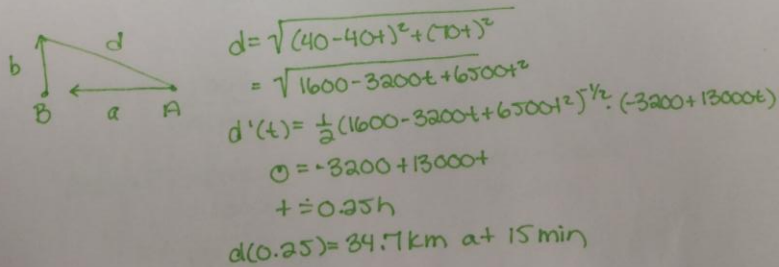 d = √(40-40t)² + (70t)²
= √1600-3200t+6500t²
d'(t) = ½(1600-3200t+6500t²)^-1/2 · (-3200+13000t)
0 = -3200+13000t
t ≐ 0.25h
d(0.25) = 34.7km at 15min
b
d
B
a
A